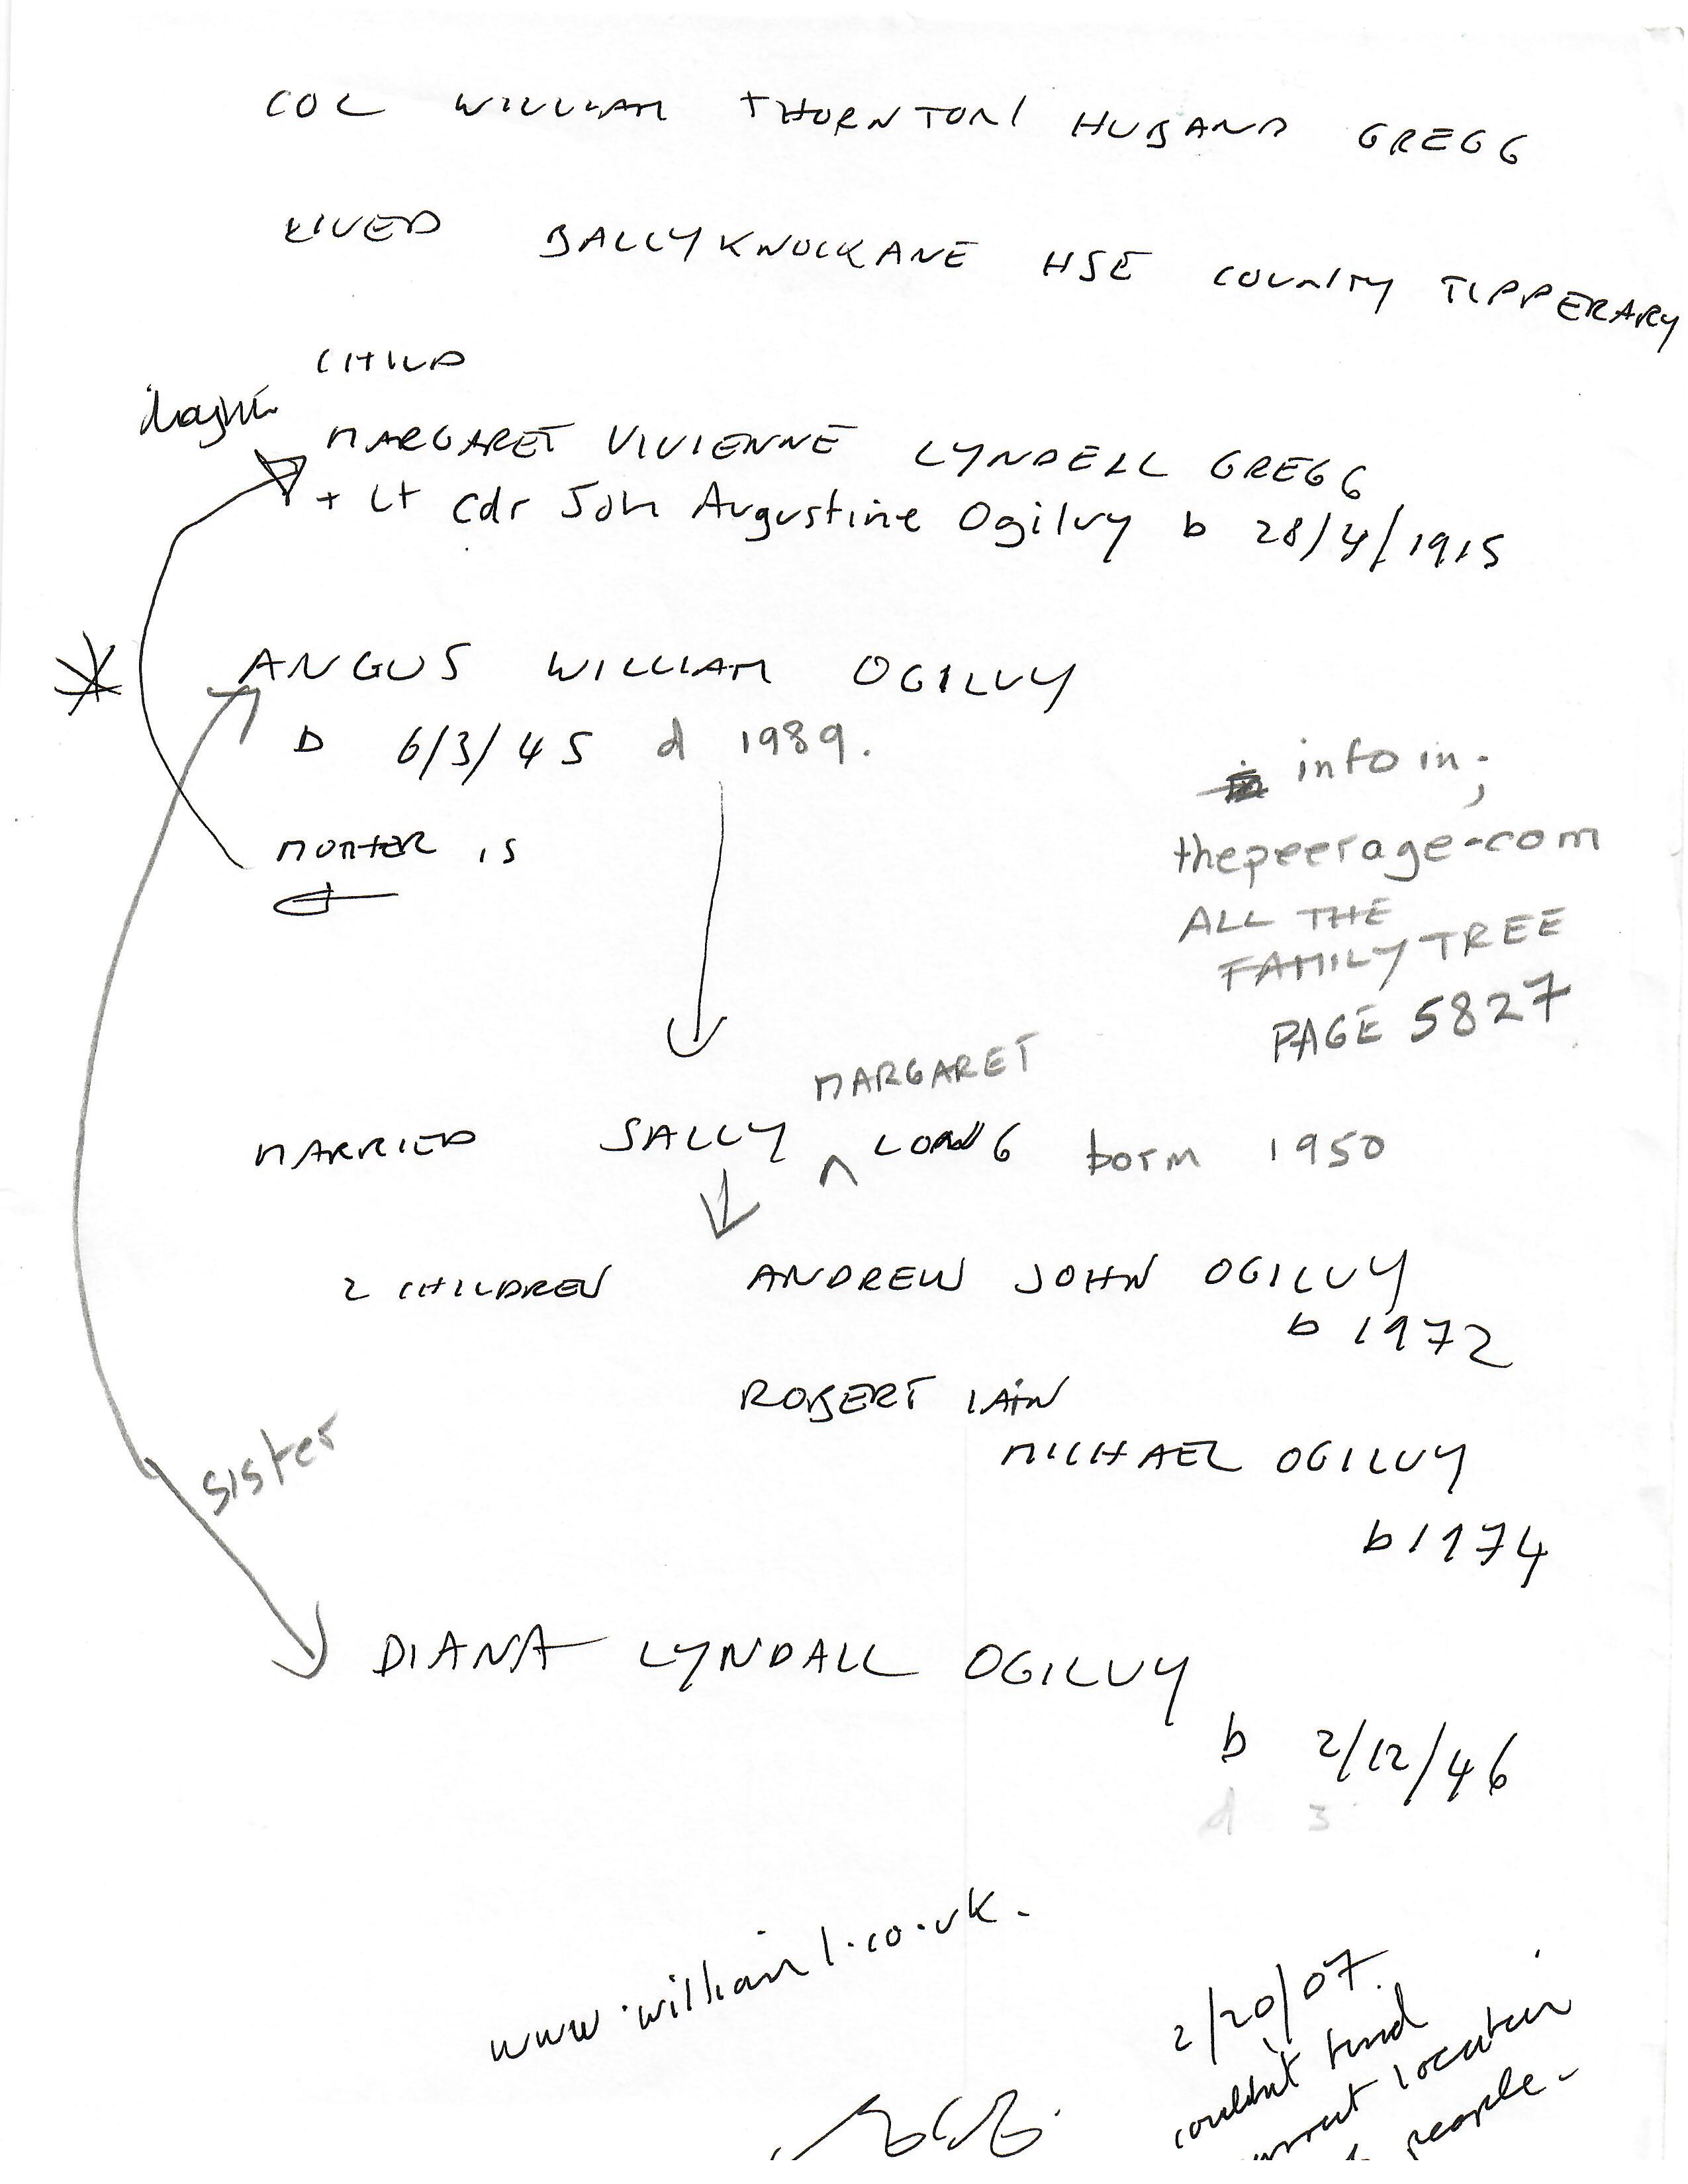 COL WILLIAM THORNTON HUBAND GREGG
LIVED BALLYKNOCKANE HSE COUNTY TIPPERARY
CHILD
MARGARET VIVIENNE LYNDELL GREGG
+ Lt Cdr Joh Augustine Ogilvy b 28/4/1915
ANGUS WILLIAM OGILVY
b 6/3/45 d 1989.
MOTHER IS
info in;
thepeerage-com
ALL THE
FAMILY TREE
PAGE 5827
MARGARET
MARRIED SALLY ^ LONG born 1950
2 CHILDREN ANDREW JOHN OGILVY
b 1972
ROBERT IAIN
MICHAEL OGILVY
b 1974
sister
DIANA LYNDALL OGILVY
b 2/12/46
d 3
www.william1.co.uk.
2/20/07.
couldnt find
current location
people.